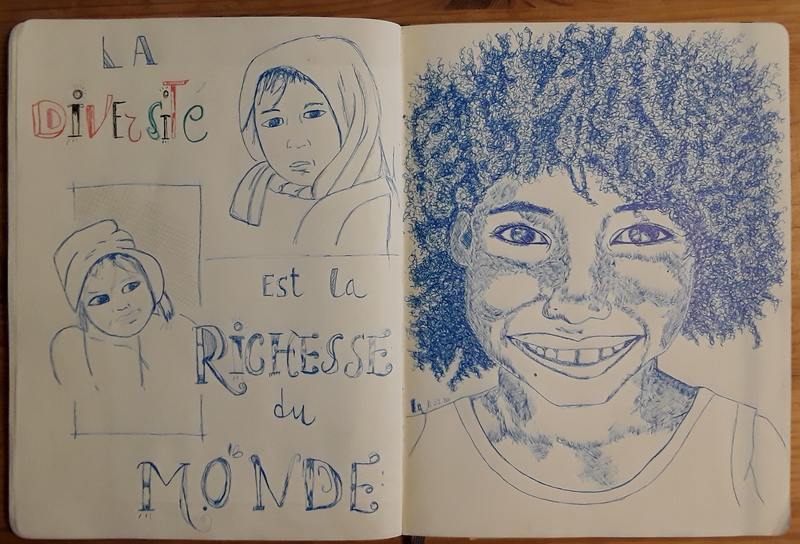 LA
DiVErSiTé
EST la
RICHESSE
du
MONDE